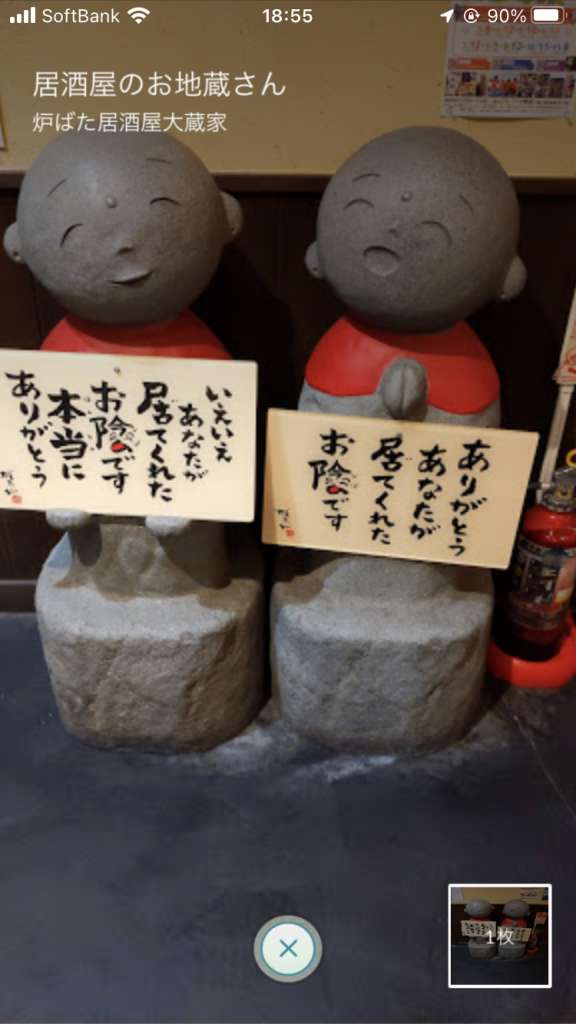 SoftBank
18:55
90%
居酒屋のお地蔵さん
炉ばた居酒屋大蔵家
ありがとう
あなたが
居てくれた
お陰です
いえいえ
あなたが
居てくれた
お陰です
本当に
ありがとう
1枚